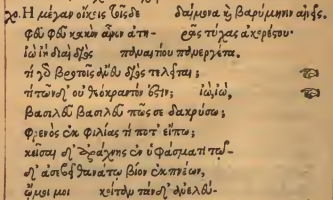 χο. Ἦ μέγαν οἴκοις τοῖσδε δαίμονα καὶ βαρύμηνιν αἰνεῖς.
φεῦ φεῦ κακὸν αἶνον ἀτη- ρᾶς τύχας ἀκορέστου·
ἰὼ ἰὴ διαὶ διὸς παναιτίου πανεργέτα.
τί γὰρ βροτοῖς ἄνευ διὸς τελεῖται;
τί τῶν δ' οὐ θεόκραντόν ἐστιν; ἰὼ, ἰὼ,
βασιλεῦ βασιλεῦ πῶς σε δακρύσω;
φρενὸς ἐκ φιλίας τί ποτ' εἴπω;
κεῖσαι δ' ἀράχνης ἐν ὑφάσματι τῷ-
δ' ἀσεβεῖ θανάτῳ βίον ἐκπνέων,
ὤμοι μοι κοίταν τάνδ' ἀνελεύ-